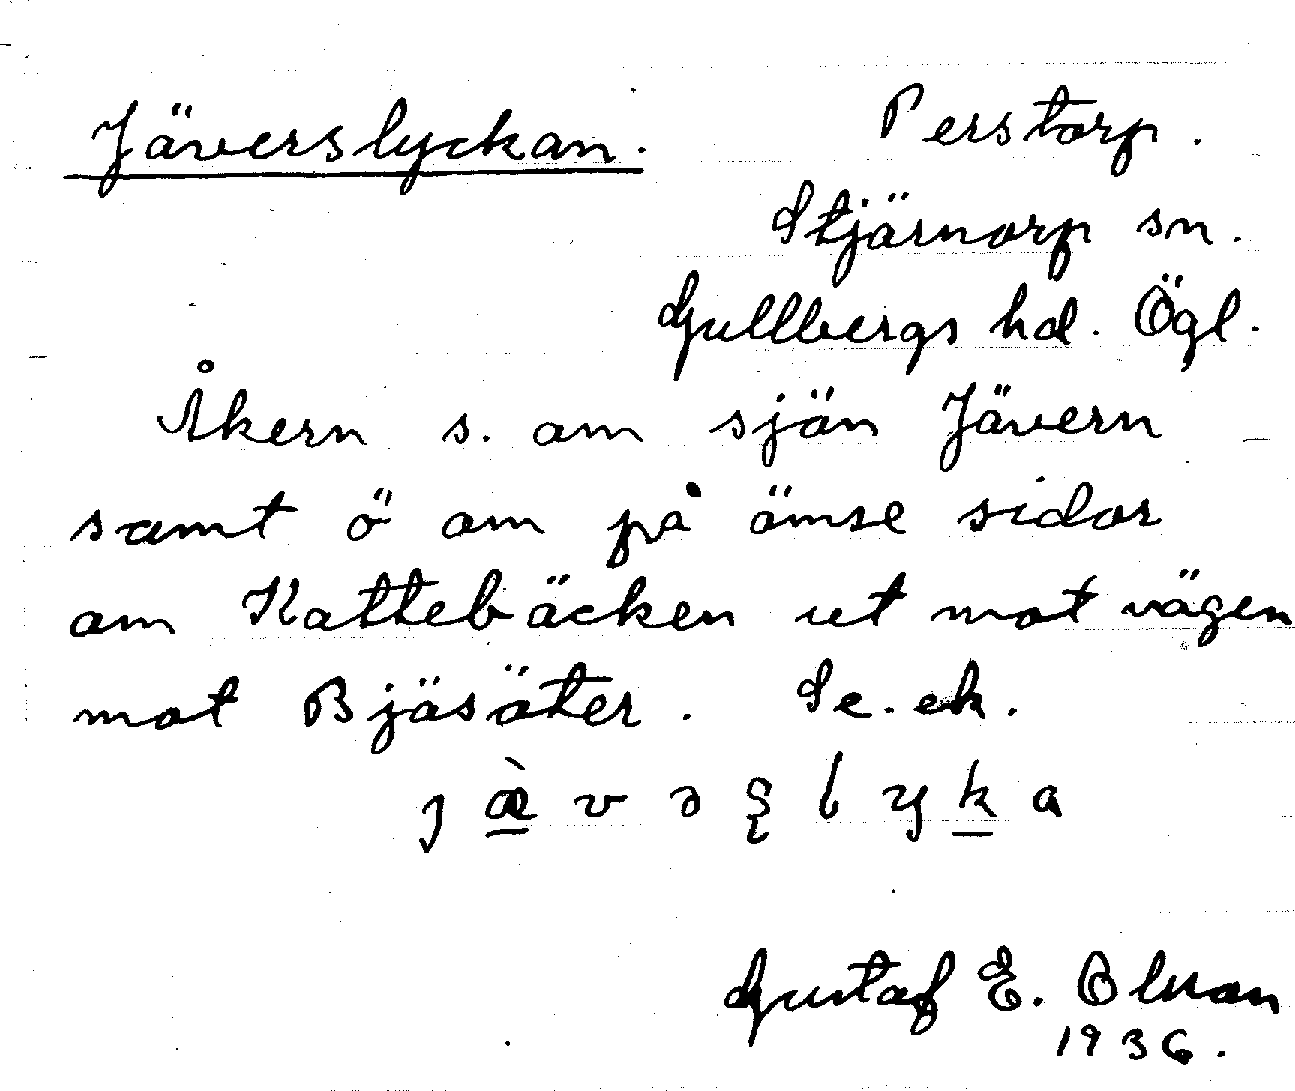 Jäverslyckan.
Perstorp.
Stjärnorp sn.
Gullbergs hd. Ögl.
Åkern s. om sjön Jävern
samt ö om på ömse sidor
om Kattebäcken ut mot vägen
mot Bjäsäter. Se. ek.
j æ̀ v ə ʂ l y k a
Gustaf E. Olsson
1936.